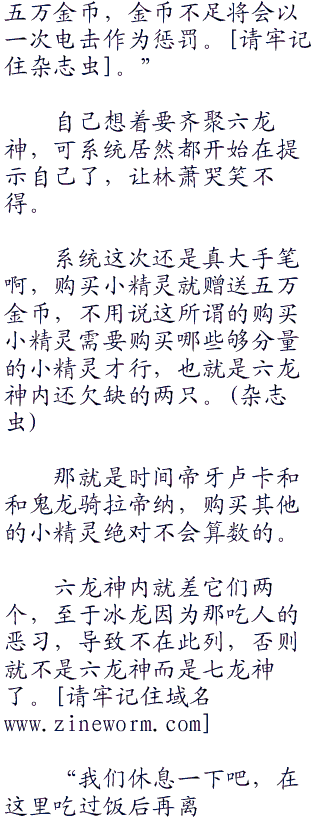 五万金币，金币不足将会以
一次电击作为惩罚。[请牢记
住杂志虫]。”
自己想着要齐聚六龙
神，可系统居然都开始在提
示自己了，让林萧哭笑不
得。
系统这次还是真大手笔
啊，购买小精灵就赠送五万
金币，不用说这所谓的购买
小精灵需要购买哪些够分量
的小精灵才行，也就是六龙
神内还欠缺的两只。(杂志
虫)
那就是时间帝牙卢卡和
和鬼龙骑拉帝纳，购买其他
的小精灵绝对不会算数的。
六龙神内就差它们两
个，至于冰龙因为那吃人的
恶习，导致不在此列，否则
就不是六龙神而是七龙神
了。[请牢记住域名
www.zineworm.com]
“我们休息一下吧，在
这里吃过饭后再离